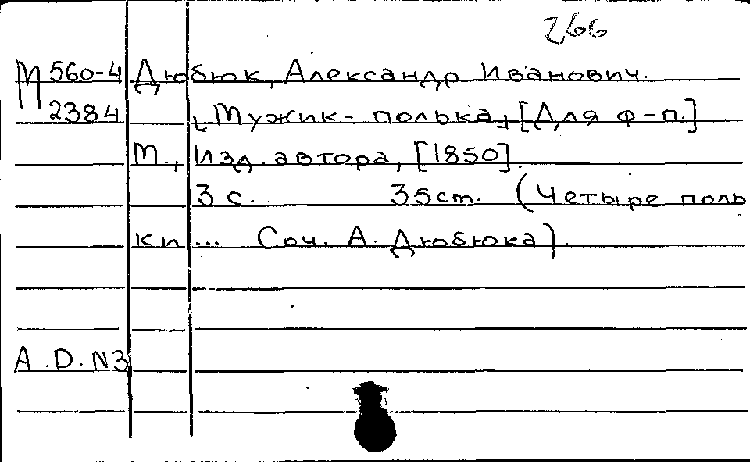 266
М 560-4 Дюбюк, Александр Иванович.
2384 [Мужик-полька] [Для ф-п.]
М., Изд. автора, [1850].
3 с. 35 cm. (Четыре поль
ки ... Соч. А. Дюбюка).
A.D.N3